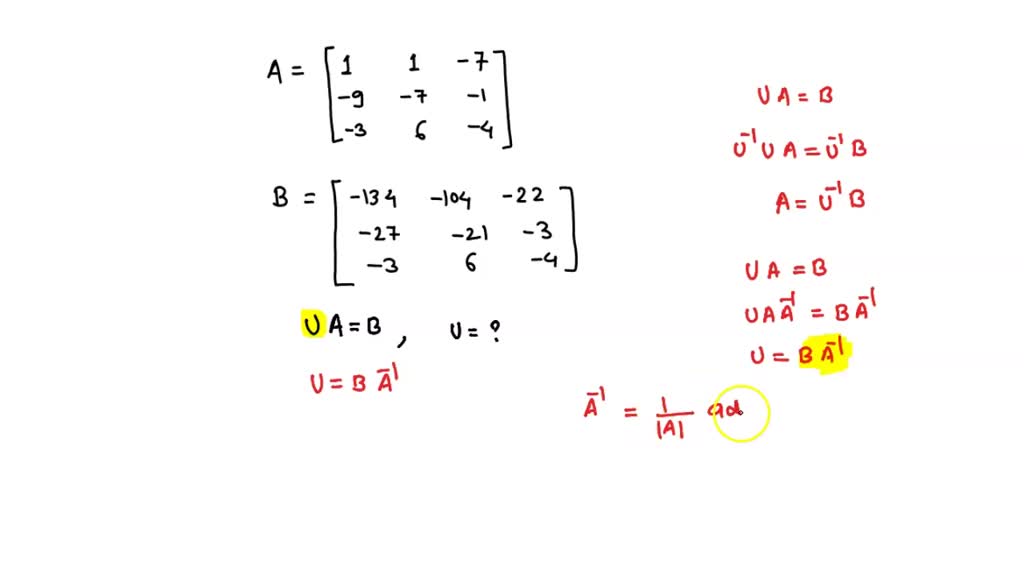 A = [ 1 1 -7
-9 -7 -1
-3 6 -4 ]
B = [ -134 -104 -22
-27 -21 -3
-3 6 -4 ]
U A = B , U = ?
U = B A⁻¹
U A = B
U⁻¹ U A = U⁻¹ B
A = U⁻¹ B
U A = B
U A A⁻¹ = B A⁻¹
U = B A⁻¹
A⁻¹ = 1/|A| ad